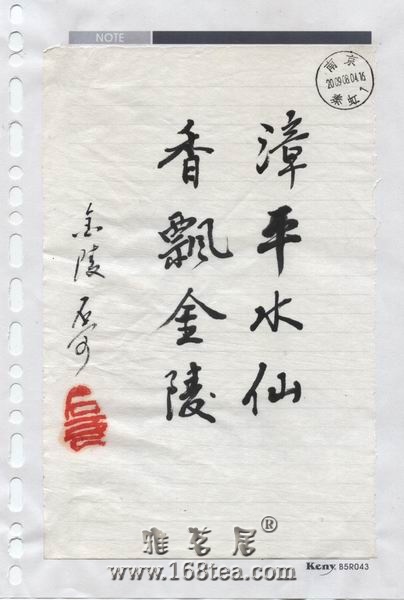 NOTE
南京
2009.08.04.16
漳平水仙
香飄金陵
金陵
雅茗居®
www.168tea.com
Keny B5R043